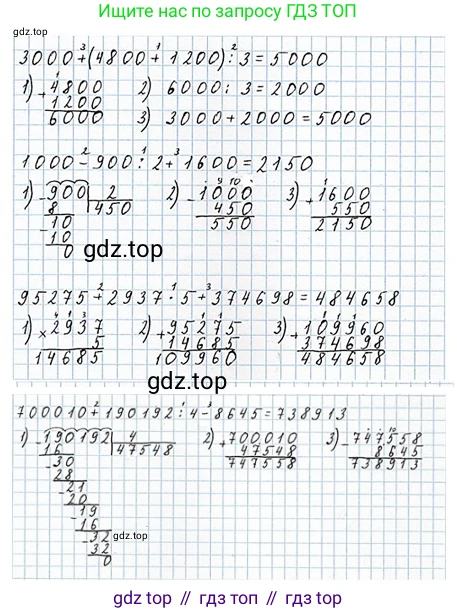 Ищите нас по запросу ГДЗ ТОП
3000+(4800+1200):3=5000
1) +4800
1200
6000
2) 6000:3=2000
3) 3000+2000=5000
1000-900:2+1600=2150
1) -900 2
8 450
-10
10
0
2) -1000
450
550
3) +1600
550
2150
gdz.top
95275+2937·5+374698=484658
1) ×2937
5
14685
2) +95275
14685
109960
3) +109960
374698
484658
gdz.top
700010+190192:4-8645=738913
1) -190192 4
16 47548
-30
28
-21
20
-19
16
-32
32
0
2) +700010
47548
747558
3) -747558
8645
738913
gdz.top
гдз топ // гдз топ // гдз топ